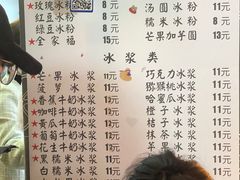 ★玫瑰冰粉 8元 汤圆冰粉 8元
红豆冰粉 8元 糯米冰粉 8元
绿豆冰粉 8元 芒果加芋圆
★全家福 15元 13元
冰浆类
芒果冰浆 11元 巧克力冰浆 11元
菠萝冰浆 11元 猕猴桃冰浆 11元
★香蕉牛奶冰浆 12元 哈蜜瓜冰浆 11元
★咖啡牛奶冰浆 12元 橙子冰浆 11元
★黄瓜牛奶冰浆 12元 桔子冰浆 11元
★葡萄牛奶冰浆 12元 抹茶冰浆 11元
★花生牛奶冰浆 12元 草莓冰浆 11元
★黑糯米冰浆 11元
11元